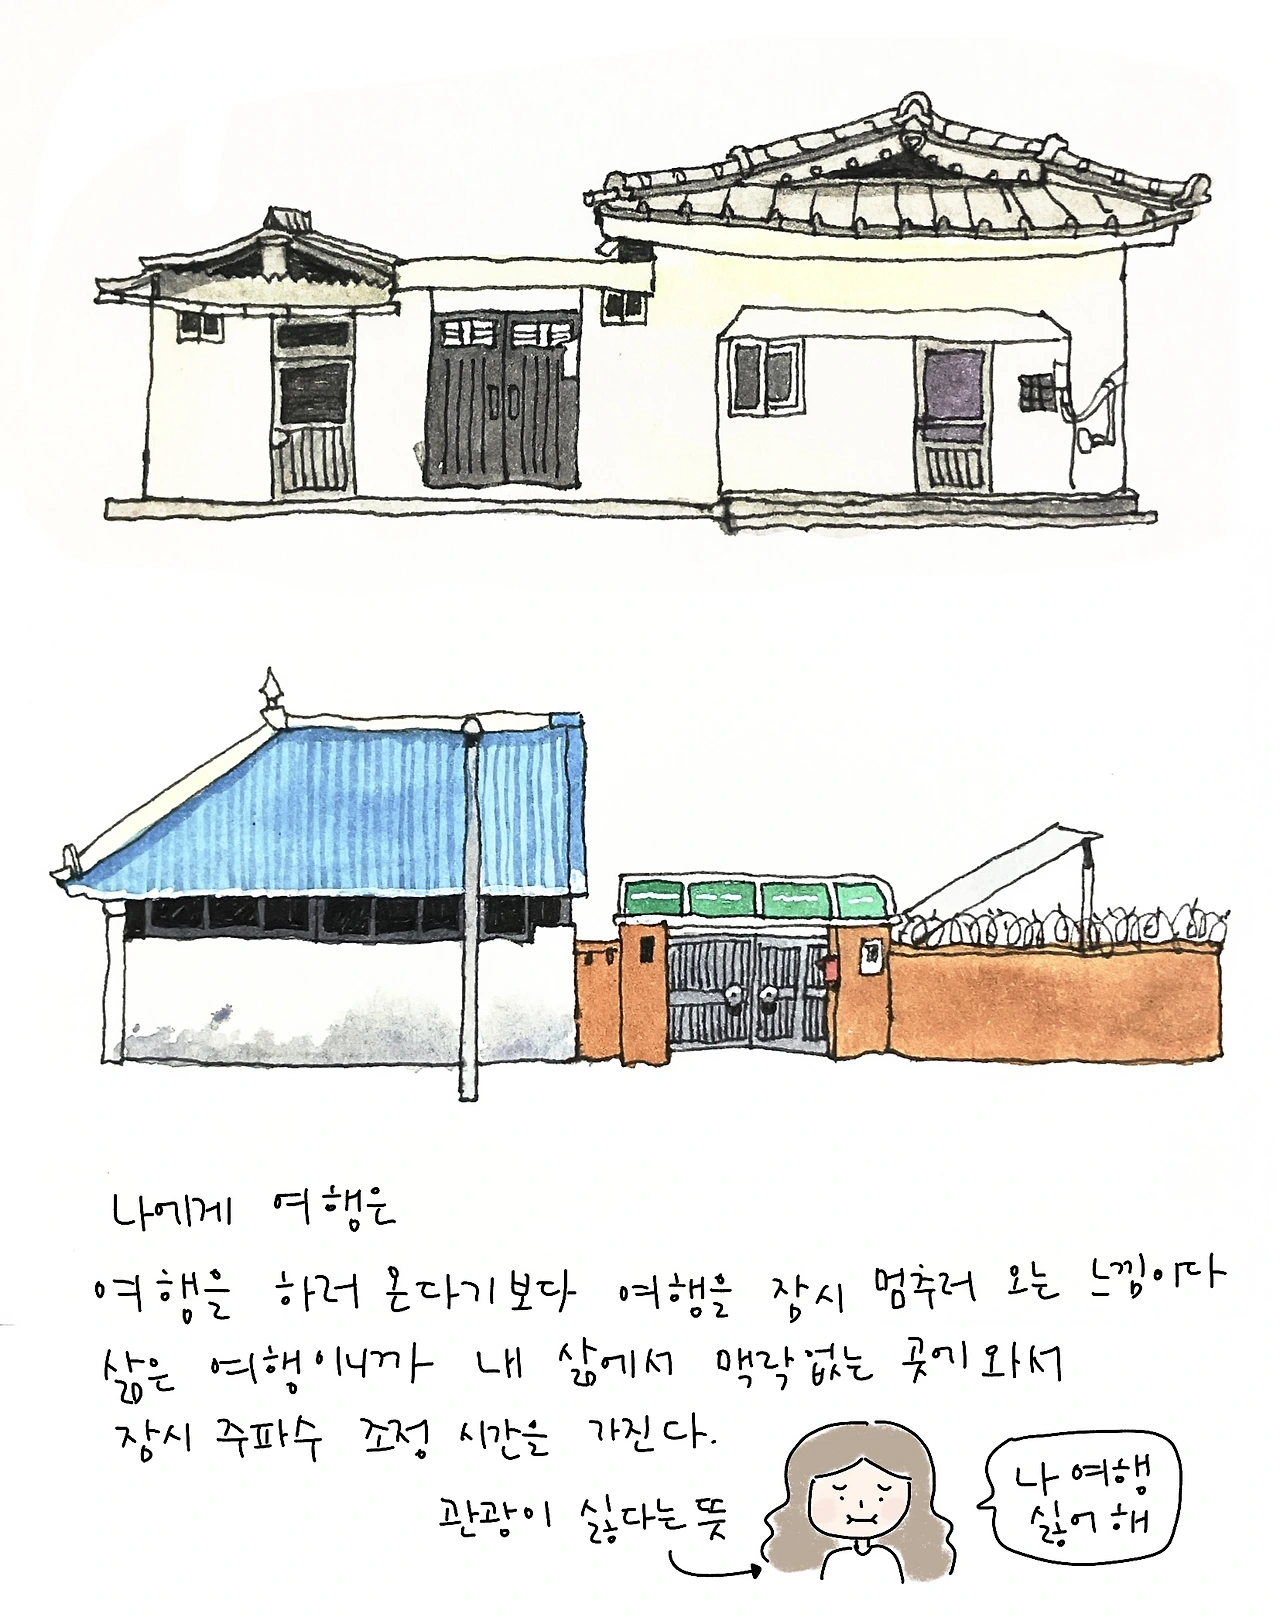 나에게 여행은
여행을 하러 온다기보다 여행을 잠시 멈추러 오는 느낌이다
삶은 여행이니까 내 삶에서 맥락없는 곳에 와서
잠시 주파수 조정 시간을 가진다.
관광이 싫다는 뜻
나 여행
싫어 해